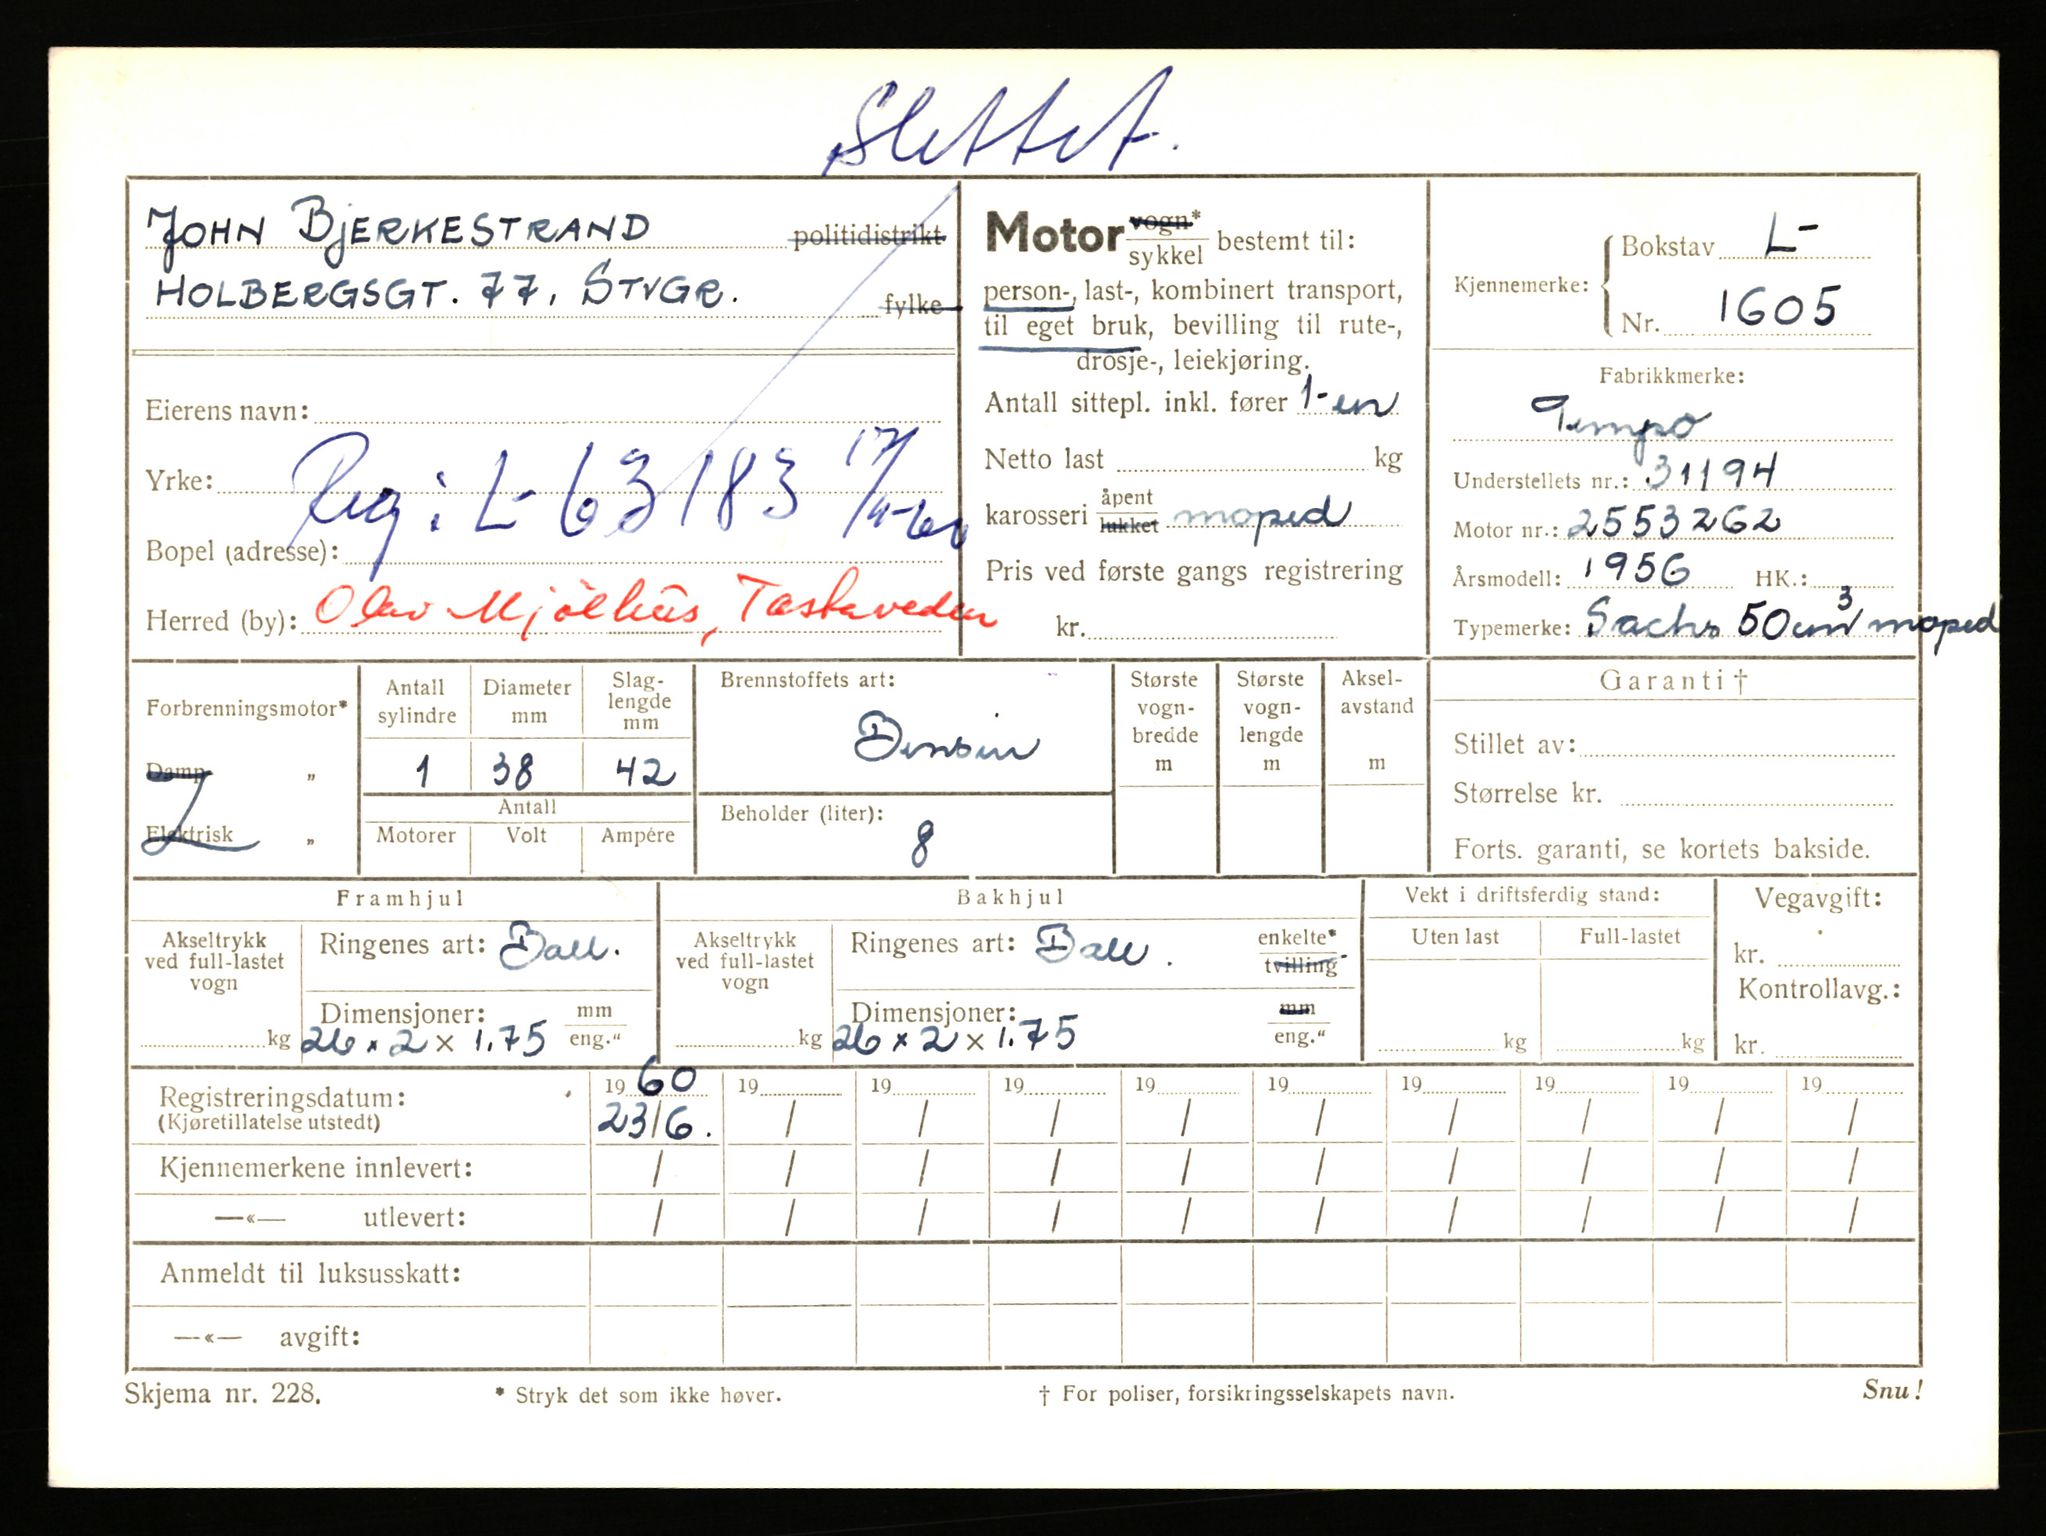 Slettet.
JOHN BJERKESTRAND politidistrikt
HOLBERGSGT. 77, STVGR. fylke
Eierens navn:
Yrke:
Reg i L- 63183 17/
Bopel (adresse):
Herred (by): Olav Mjølhus, Tastaveden
Motor vogn* / sykkel bestemt til:
person-, last-, kombinert transport,
til eget bruk, bevilling til rute-,
drosje-, leiekjøring.
Antall sittepl. inkl. fører 1-en
Netto last kg
karosseri åpent / lukket moped
Pris ved første gangs registrering
kr.
Kjennemerke: Bokstav L-
Nr. 1605
Fabrikkmerke:
Tempo
Understellets nr.: 31194
Motor nr.: 2553262
Årsmodell: 1956 HK.:
Typemerke: Sachs 50 cm³ moped
Forbrenningsmotor*
Damp „
Elektrisk „
Antall sylindre
Diameter mm
Slag-lengde mm
1 38 42
Antall
Motorer Volt Ampére
Brennstoffets art:
Bensin
Beholder (liter):
8
Største vogn-bredde m
Største vogn-lengde m
Aksel-avstand m
Garanti †
Stillet av:
Størrelse kr.
Forts. garanti, se kortets bakside.
Framhjul
Akseltrykk ved full-lastet vogn
kg
Ringenes art: Ball.
Dimensjoner: mm / eng."
26 x 2 x 1.75
Bakhjul
Akseltrykk ved full-lastet vogn
kg
Ringenes art: Ball. enkelte* / tvilling
Dimensjoner: mm / eng."
26 x 2 x 1.75
Vekt i driftsferdig stand:
Uten last Full-lastet
kg kg
Vegavgift:
kr.
Kontrollavg.:
kr.
Registreringsdatum: 19 60 19 19 19 19 19 19 19 19 19
(Kjøretillatelse utstedt) 23/6. / / / / / / / / /
Kjennemerkene innlevert: / / / / / / / / / /
—«— utlevert: / / / / / / / / / /
Anmeldt til luksusskatt:
—«— avgift:
Skjema nr. 228. * Stryk det som ikke høver. † For poliser, forsikringsselskapets navn. Snu!